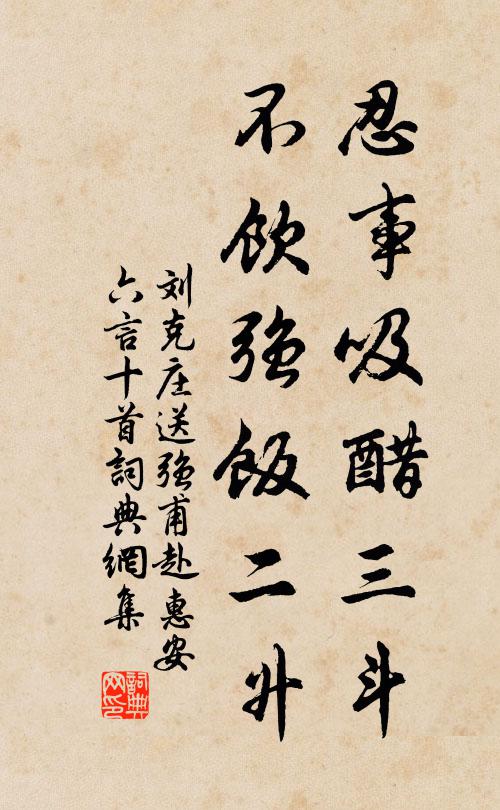 忍事吸醋三斗
不飲強飯二升
刘克庄送強甫赴惠安
六言十首詞典網集
詞典
网印